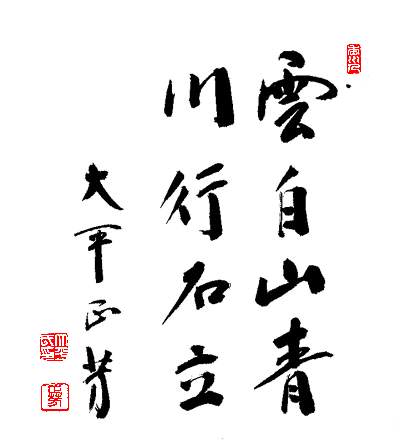 雲白山青
川行石立
大平正芳